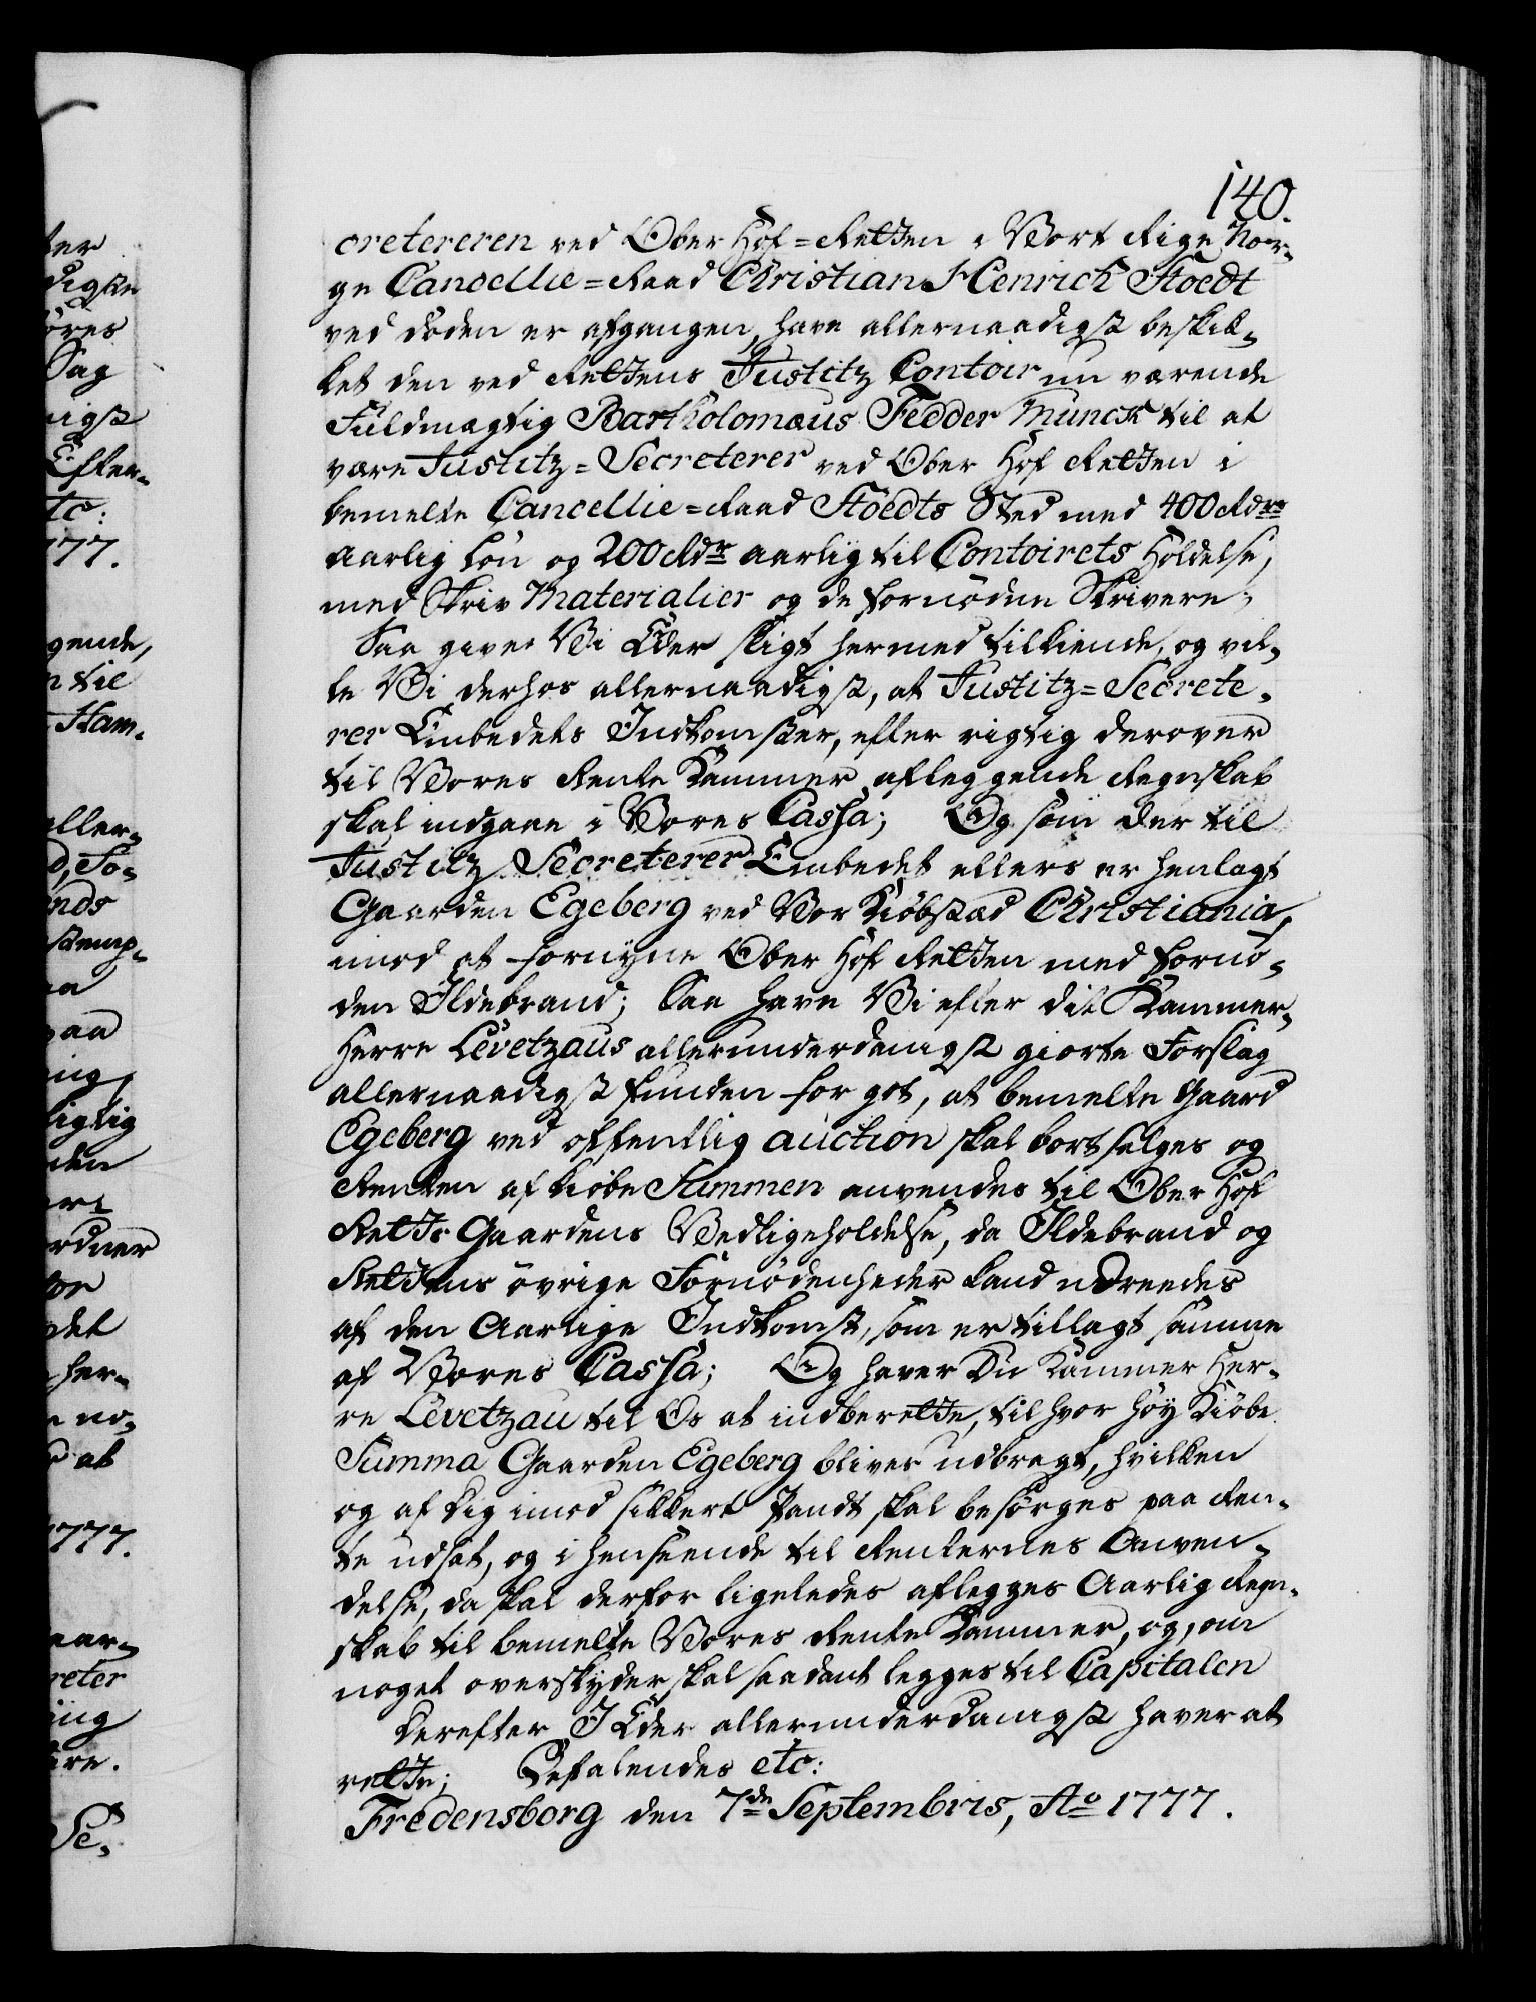 140.
cretereren ved Ober Hof=Retten i Vort Rige Nor¬
ge Cancellie=Raad Christian Henrich Stoedt
ved døden er afgangen, have allernaadigst beskik¬
ket den ved Rettens Justitz Contoir nu værende
Fuldmægtig Bartholomæus Fedder Munck til at
være Justitz=Secreterer ved Ober Hof Retten i
bemelte Cancellie=Raad Stoedts Sted med 400 Rdrs
Aarlig Løn og 200 Rdr Aarlig til Contoirets Holdelse,
med Skriv Materialier og de fornødne Skrivere;
Saa give Vi Eder sligt hermed tilkiende, og vil¬
le Vi derhos allernaadigst, at Justitz=Secrete¬
rer Embedets Indkomster, efter rigtig derover
til Vores Rente Kammer afleggende Regnskab
skal indgaae i Vores Cassa; Og som der til
Justitz Secreterer Embedet ellers er henlagt
Gaarden Egeberg ved Vor Kiøbstæd Christiania,
imod at fornyne Ober Hof Retten med fornø¬
den Ildebrand; Saa have Vi efter dit Kammer¬
Herre Levetzaus allerunderdanigst giorte Forslag
allernaadigst funden for got, at bemelte Gaard
Egeberg ved offentlig auction skal bortselges og
Renten af Kiøbe Summen anvendes til Ober Hof
Retts Gaardens Vedligeholdelse, da Ildebrand og
Rettens øvrige Fornødenheder kand udreedes
af den Aarlige Indkomst, som er tillagt samme
af Vores Cassa; Og haver Du Kammer Her¬
re Levetzau til Os at indberette, til hvor høy Kiøbe
Summa Gaarden Egeberg bliver udbragt, hvilken
og af dig imod sikkert Pandt skal besørges paa Ren¬
te udsat, og i henseende til Renternes Anven¬
delse, da skal derfor ligeledes aflegges Aarlig Regn¬
skab til bemelte Vores Rente Kammer, og, om
noget overskyder skal saadant legges til Capitalen
Derefter I Eder allerunderdanigst haver at
rette; Befalendes etc:
Fredensborg den 7de Septembris, Ao 1777.